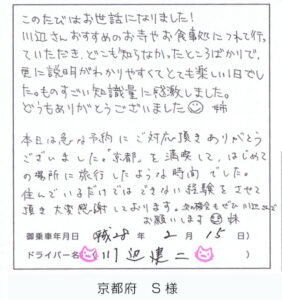 このたびはお世話になりました！
川辺さんおすすめのお寺やお食事処につれて行っ
ていただき、どこも知らなかったところばかりで、
更に説明がわかりやすくてとても楽しい1日でし
た。ものすごい知識量に感激しました。
どうもありがとうございました 姉
本日は急な予約にご対応頂きありがとう
ございました。"京都"を満喫して、はじめて
の場所に旅行したような時間でした。
住んでいるだけではできない経験をさせて
頂き大変感謝しております。次の機会もぜひ川辺さんで
お願いします 妹
御乗車年月日（平成28年 2月 15日）
ドライバー名（川辺建二）
京都府 S様